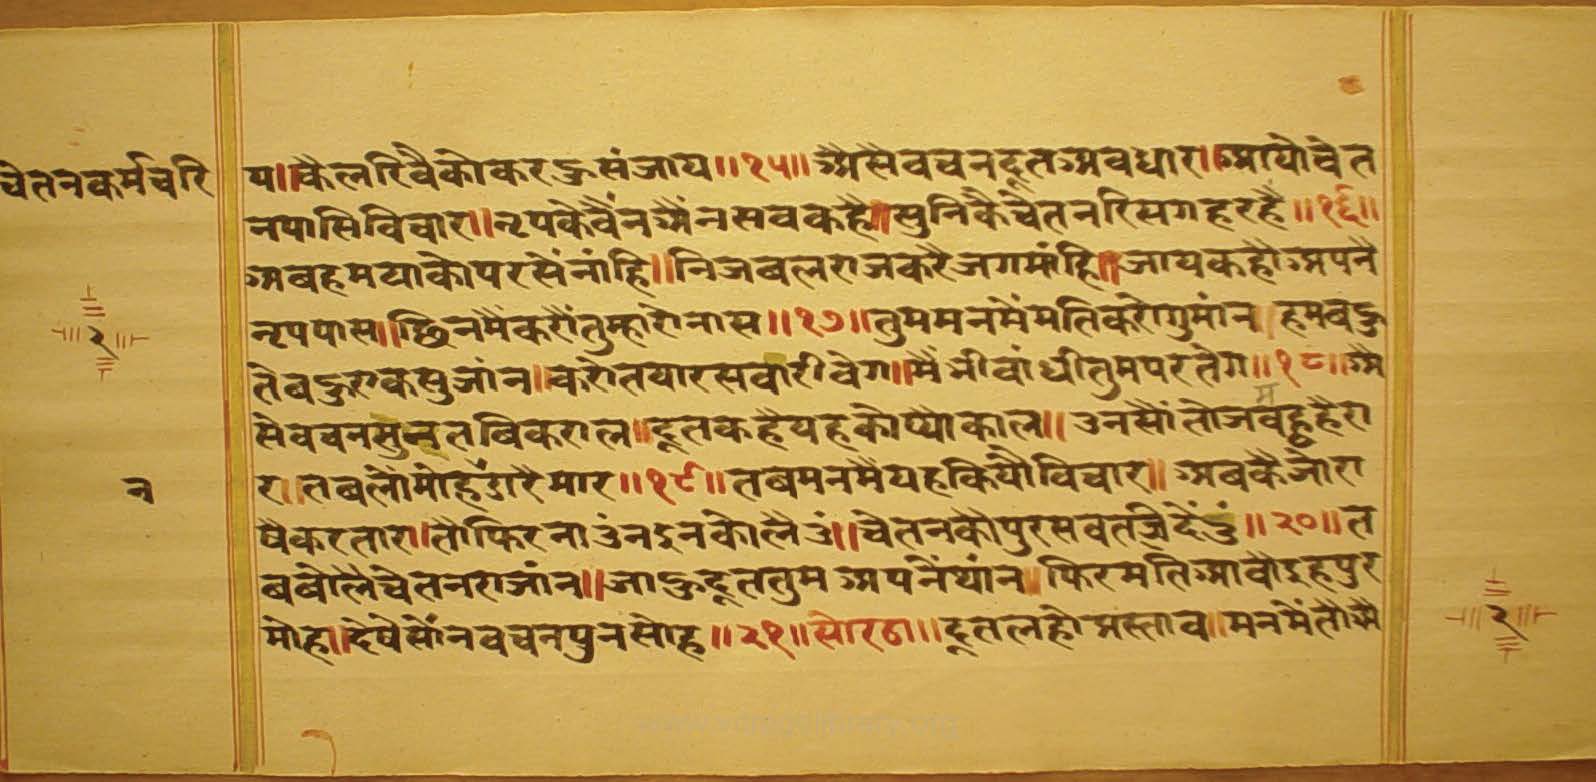 चेतनकर्मचरि
य॥कैलरिवैकोकरऊसंजाय॥१५॥अैसैवचनदूतअवधार॥आयोचेत
नपासिविचार॥नृपकेवैंनअैंनसवकहै॥सुनिकैचेतनरिसगहरहै॥१६॥
अवहमयाकोपरसेंनांहि॥निजबलराजकरैजगमांहि॥जायकहौअपनै
नृपपास॥छिनमैंकरौंतुम्हारोनास॥१७॥तुममनमेंमतिकरोगुमांन॥हमवऊ
तेबऊएकसुजांन॥करोतयारसवारीवेग॥मैंभीवांधीतुमपरतेग॥१८॥अै
सेवचनसुनतबिकराल॥दूतकहैयहकोप्योकाल॥उनसौंतोजवह्वहैरा
म
र॥तबलौंमोहडारैमार॥१९॥तबमनमैंयहकियौविचार॥अबकैजोरा
न
षैकरतार॥तौफिरनाउंनइनकोलैउं॥चेतनकौपुरसवतजिदेंउं॥२०॥त
बबोलैचेतनराजांन॥जाऊदूततुमअपनैंथांन॥फिरमतिआवौइहपुर
मोह॥देषेसौंनवचनपुनसोह॥२१॥सोरठा॥दूतलहोप्रस्ताव॥मनमेंतौअै
२
२